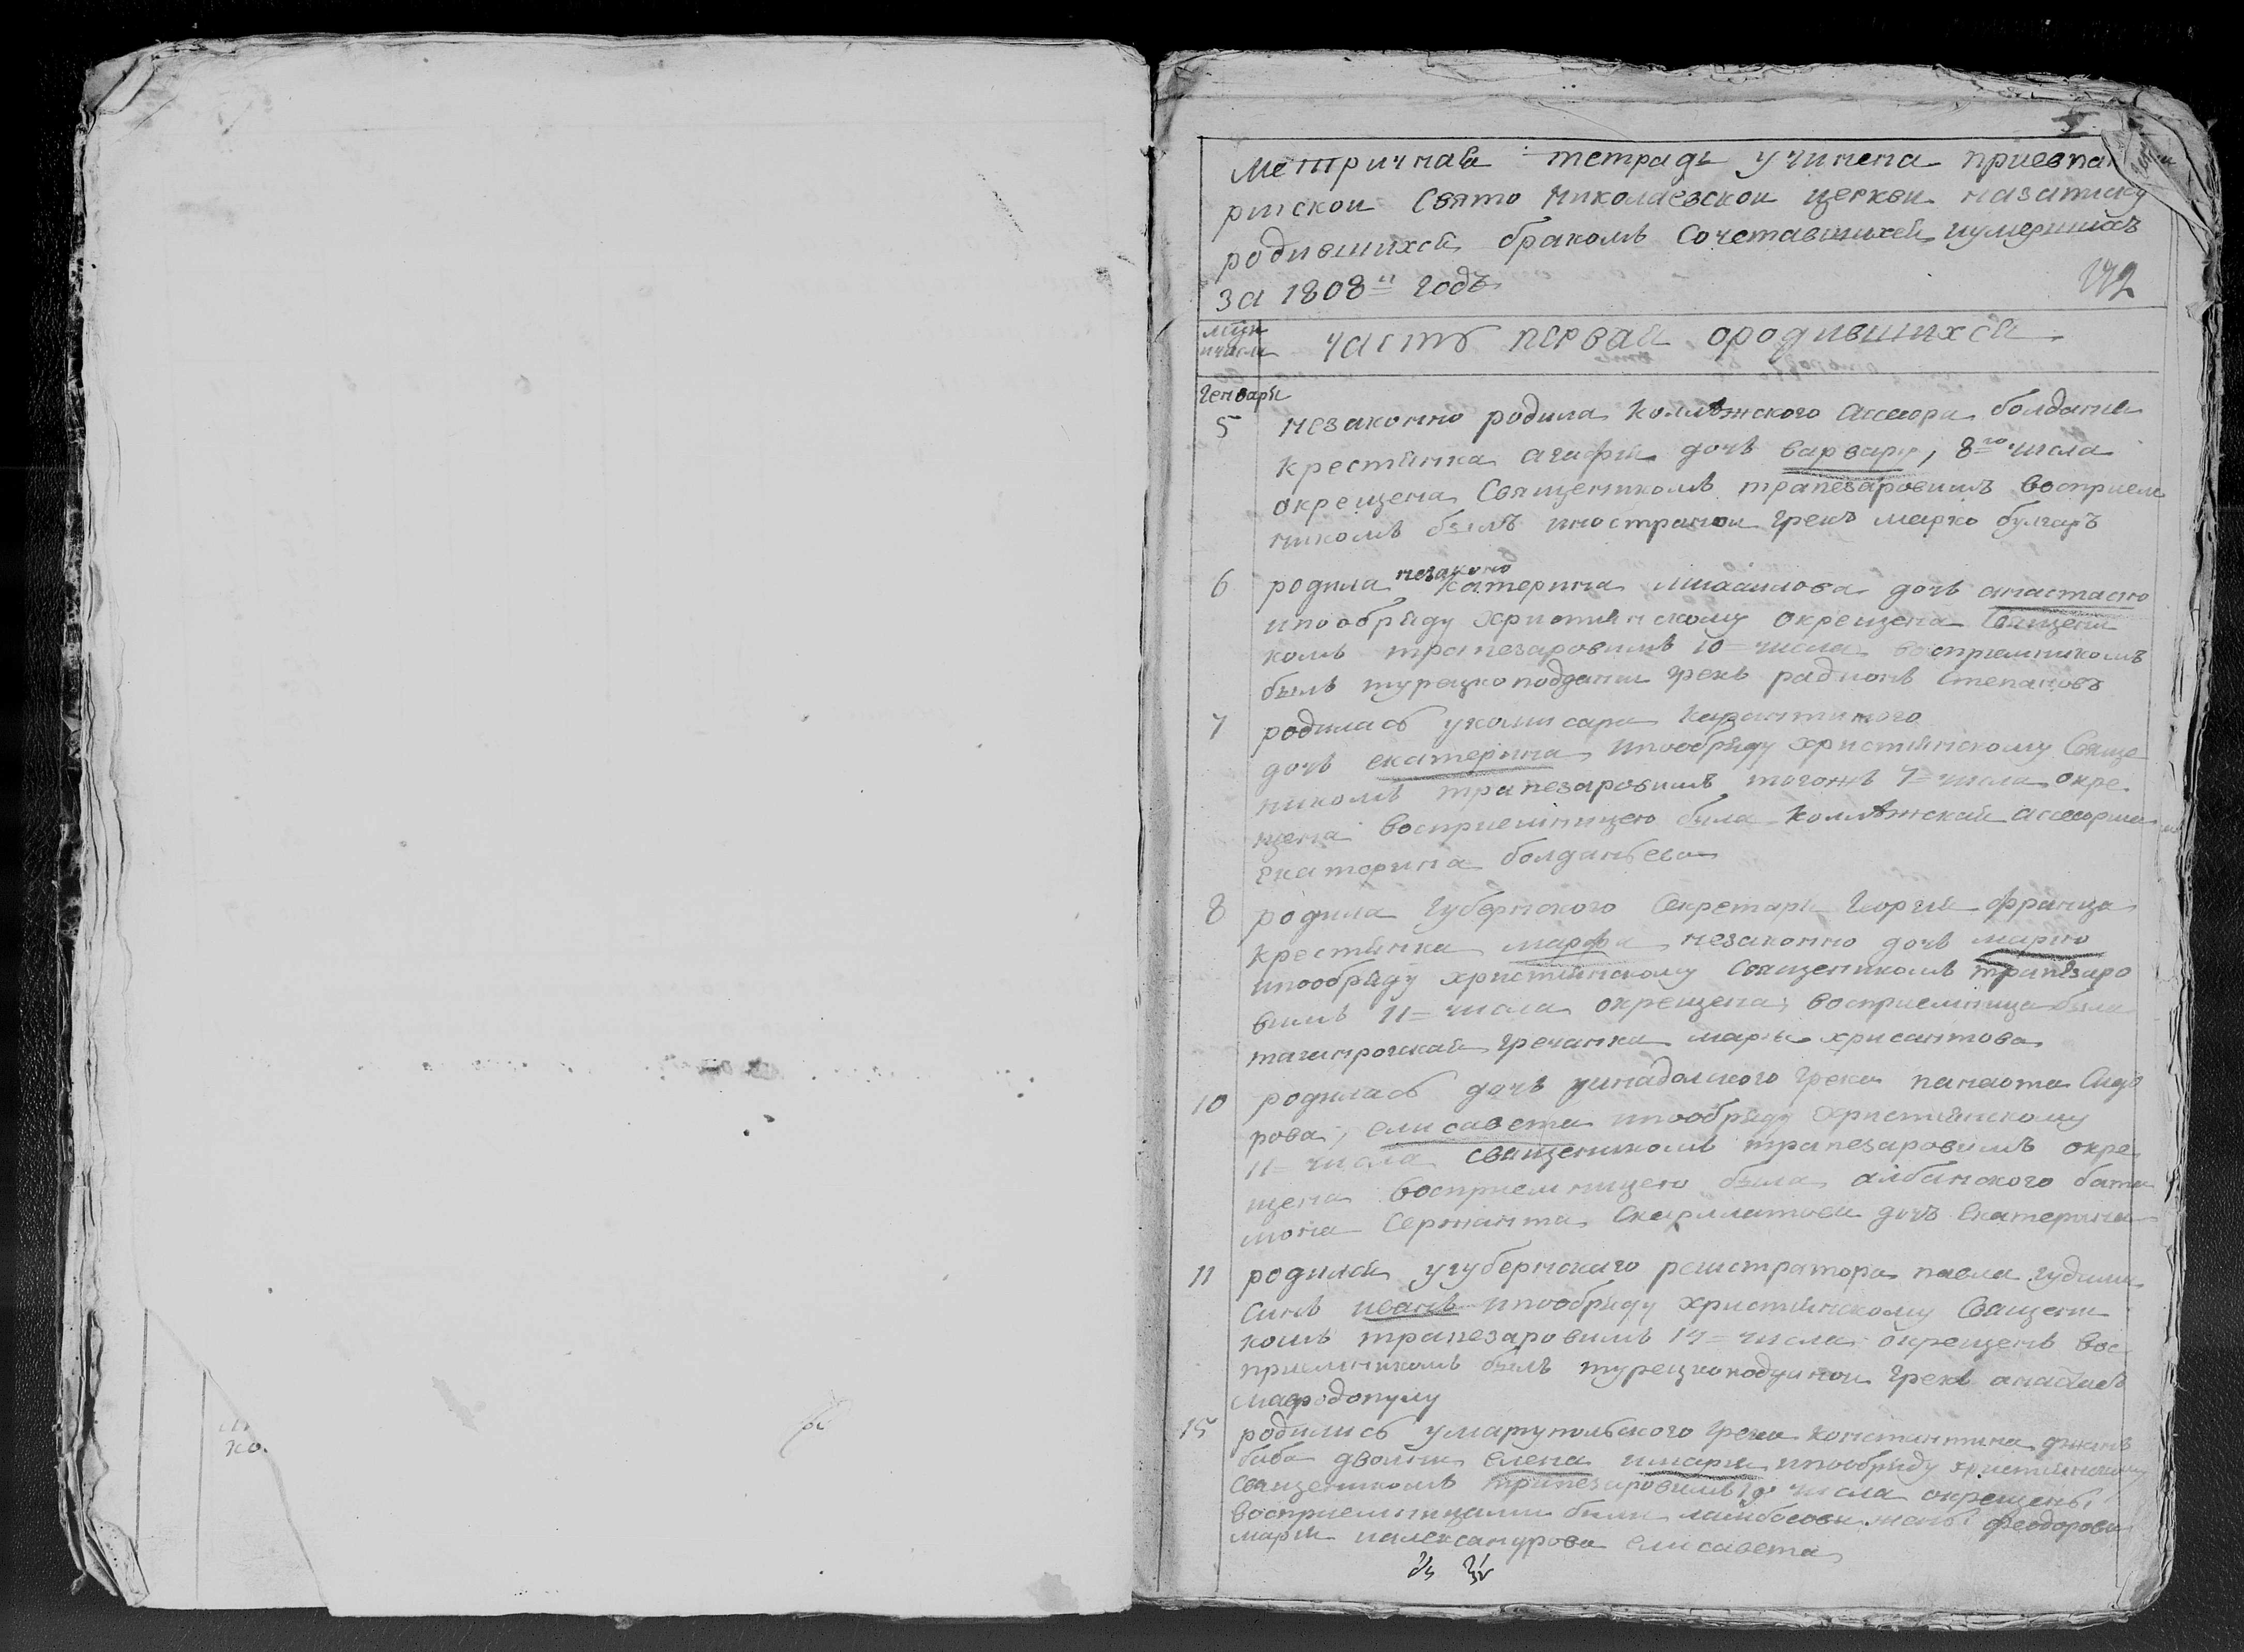 Метричнаꙗ тетрадь учинена приевпато
рийскои Свято Николаевскои церкви назаписку
родившихсѧ бракомъ Сочетавшихсѧ иумершихъ
за 1808й годъ
172
мцы
ичисла
часть первая ородившихсѧ
Генваря
5 незаконно родила Коллѣжского Ассесора болдани
крестьянка агафия дочь варвару, 8го числа
окрещена Священикомъ трапезаровимъ восприем
никомъ былъ иностранои грекъ марко булгаръ
6 родила незаконо Катерина михаилова дочь анастасию
ипообряду християнскому окрещена Священи
комъ трапезаровимъ 10 числа восприемникомъ
былъ турецкоподдани грекъ радионъ Степановъ
7 родилась укомисара карантиного
дочь екатерина ипообряду християнскому Свяще
никомъ трапезаровимъ тогожъ 7 числа окре
щена восприемницею была коллѣжская ассесорша
Екаторина болданьева
8 родила Губернского Секретаря Георгия франца
крестьянка марфа незаконно дочь марию
ипообряду християнскому священикомъ трапѣзаро
вимъ 11 числа окрещена, восприемница была
таганрогская гречанка марья хрисантова
10 родилась дочь уанадолского грека панаиота Сидо
рова, елисавета ипообряду християнскому
11 числа священикомъ трапезаровимъ окре
щена восприемницею была албанского бата
лиона Сержанта Скарлатова дочь Екатерина
11 родился угубернскаго регистратора павла гудими
Синъ иванъ ипообряду християнскому Священи
комъ трапезаровимъ 14 числа окрещенъ вос
приемникомъ былъ турецкоподданои грекъ анастасъ
мавродопулу
15 родились умариупольского грека Константина
баба двоини Елена имария ипообряду християнскому
священикомъ трапезаровимъ числа окрещены
восприемницами были жоны феодорова
мария иалександрова елисавета